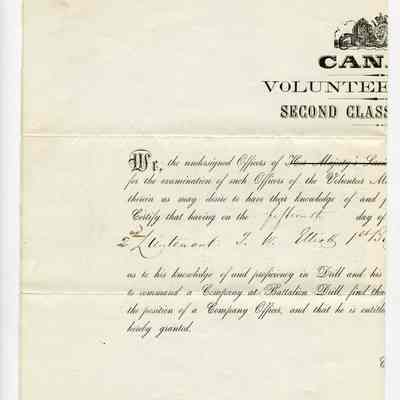 CAN
VOLUNTEE
SECOND CLASS
We, the undersigned Officers of Her Majesty's
for the examination of such Officers of the Volunteer M
therein as may desire to have their knowledge of and p
Certify that having on the fifteenth day of
2nd Lieutenant T. W. 1st B
as to his knowledge of and proficiency in Drill and his
to command a Company at Battalion Drill, find tha
the position of a Company Officer, and that he is entitle
hereby granted.